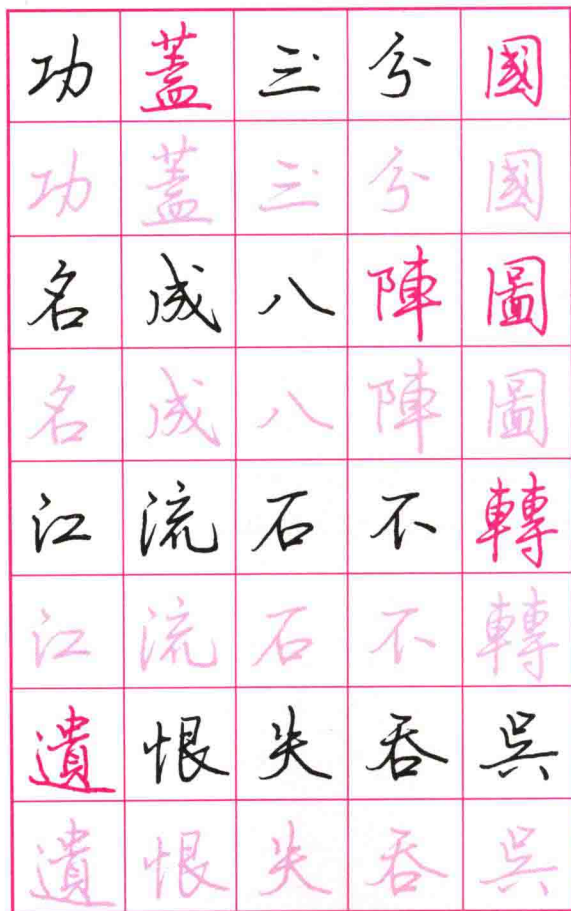 功蓋三分國
功蓋三分國
名成八陣圖
名成八陣圖
江流石不轉
江流石不轉
遺恨失吞吳
遺恨失吞吳